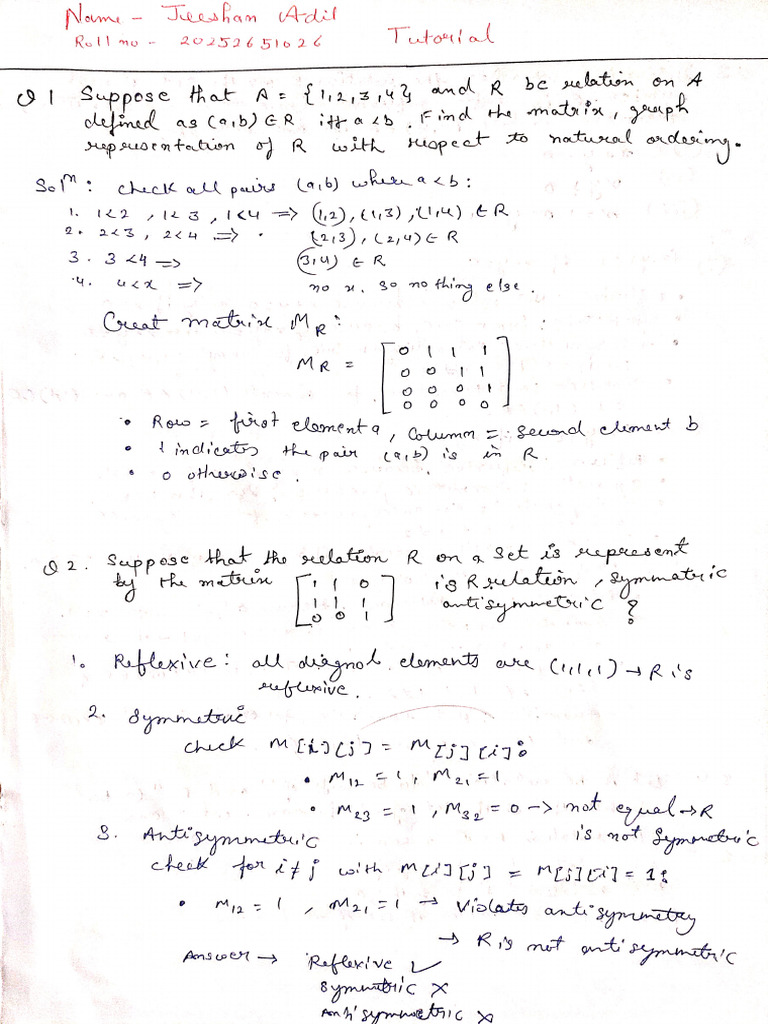 Name - Jeeshan Adil
Roll no - 20252651026 Tutorial
Q 1 Suppose that A = {1,2,3,4} and R be relation on A
defined as (a,b) ∈ R iff a<b. Find the matrix, graph
representation of R with respect to natural ordering.
Solⁿ: check all pairs (a,b) where a<b:
1. 1<2 , 1<3 , 1<4 => (1,2), (1,3), (1,4) ∈ R
2. 2<3, 2<4 => (2,3), (2,4) ∈ R
3. 3<4 => (3,4) ∈ R
4. 4<x => no x. so nothing else.
Creat matrix M_R:
M_R = [0 1 1 1
0 0 1 1
0 0 0 1
0 0 0 0]
• Row = first element a, Column = second element b
• 1 indicates the pair (a,b) is in R
• 0 otherwise.
Q 2. Suppose that the relation R on a set is represent
by the matrix [1 1 0 is R relation, symmatric
1 1 1 antisymmetric ?
0 0 1]
1. Reflexive: all diagnol elements are (1,1,1) → R is
reflexive.
2. Symmetric
check M[i][j] = M[j][i]:
• M12 = 1, M21 = 1
• M23 = 1, M32 = 0 -> not equal → R
is not Symmetric
3. Antisymmetric
check for i≠j with M[i][j] = M[j][i] = 1:
• M12 = 1, M21 = 1 → Violates antisymmetry
→ R is not antisymmetric
Answer → Reflexive ✓
Symmetric ×
Antisymmetric ×